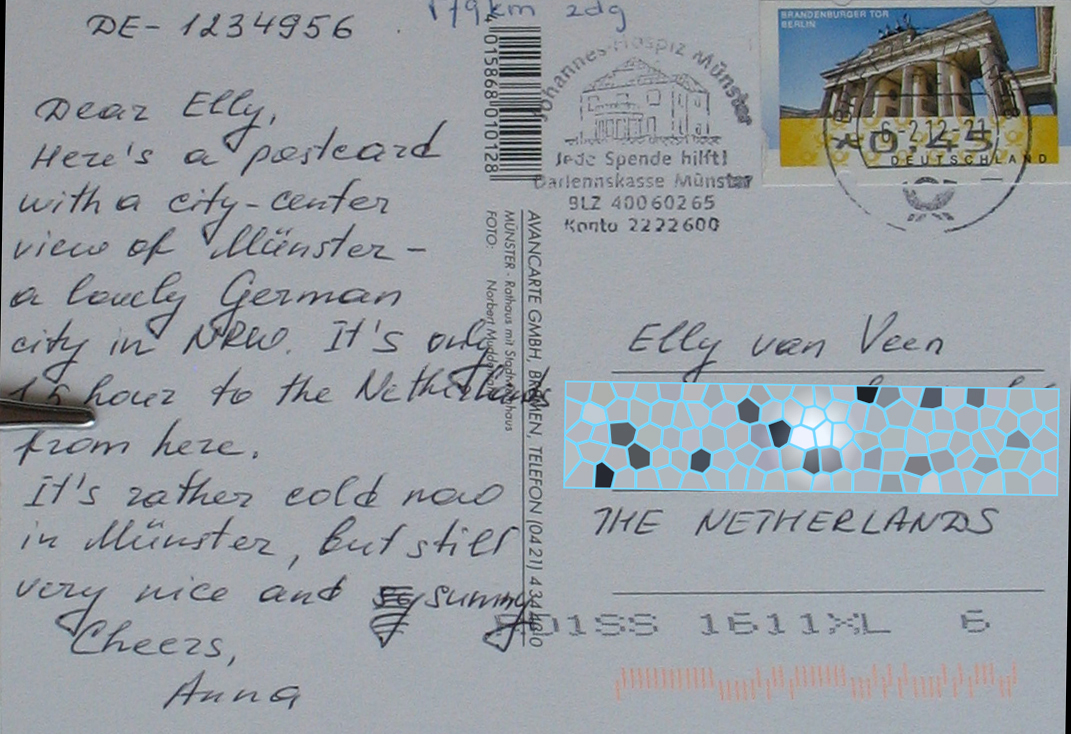 DE- 1234956
179km 2dg
Dear Elly,
Here's a postcard
with a city-center
view of Münster -
a lovely German
city in NRW. It's only
1,5 hour to the Netherlands
from here.
It's rather cold now
in Münster, but still
very nice and sunny
Cheers,
Anna
4 015868 010128
AVANCARTE GMBH, BREMEN, TELEFON (0421) 4
MÜNSTER - Rathaus mit Stadtweinhaus
FOTO: Norbert
Johannes-Hospiz Münster
Jede Spende hilft!
Darlehnskasse Münster
BLZ 40060265
Konto 2222600
BRANDENBURGER TOR
BERLIN
6-2.12-21
0,45
DEUTSCHLAND
Elly van Veen
THE NETHERLANDS
01SS 1611XL 6